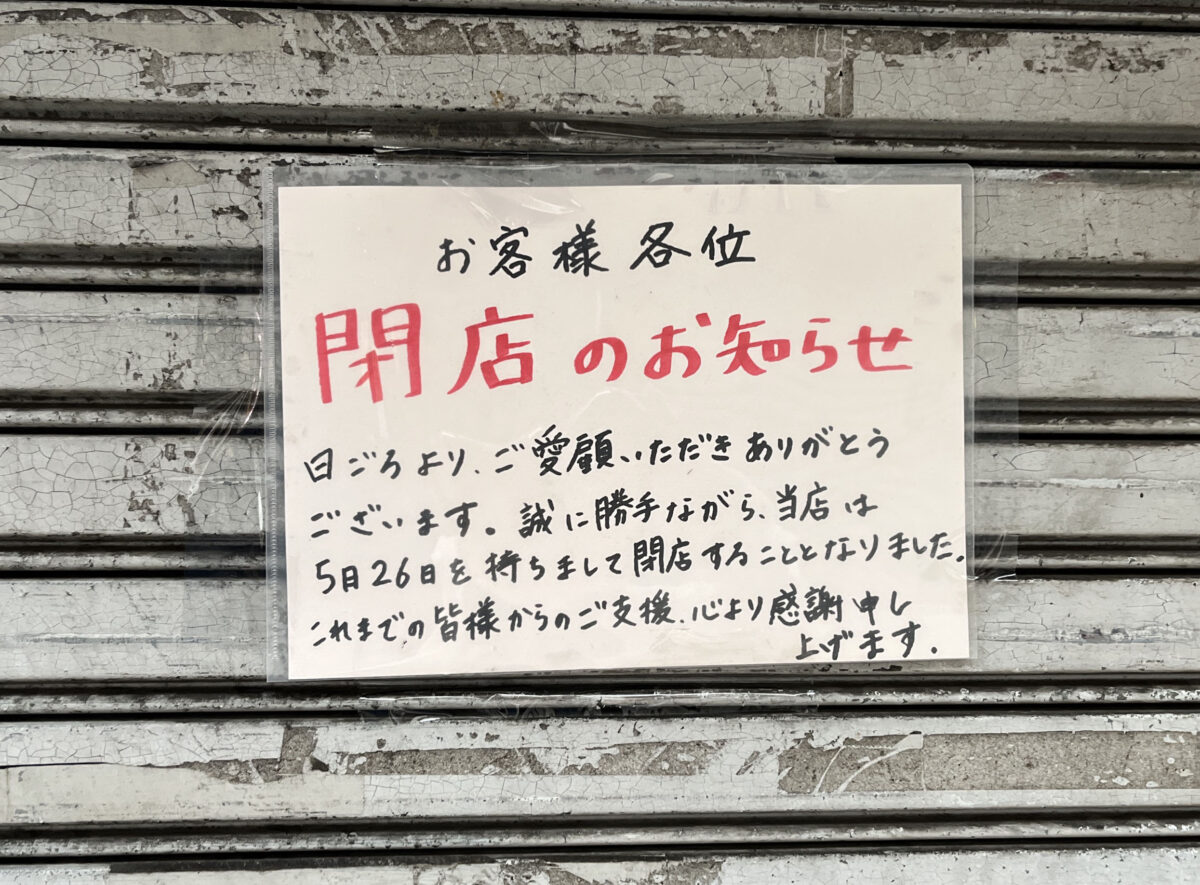 お客様各位
閉店のお知らせ
日ごろより、ご愛顧いただきありがとう
ございます。誠に勝手ながら、当店は
5日26日を持ちまして閉店することとなりました。
これまでの皆様からのご支援、心より感謝申し
上げます。